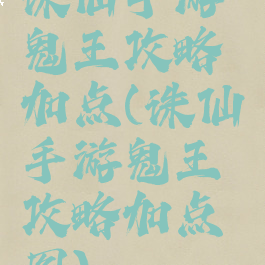 诛仙手游
鬼王攻略
加点(诛仙
手游鬼王
攻略加点
图)